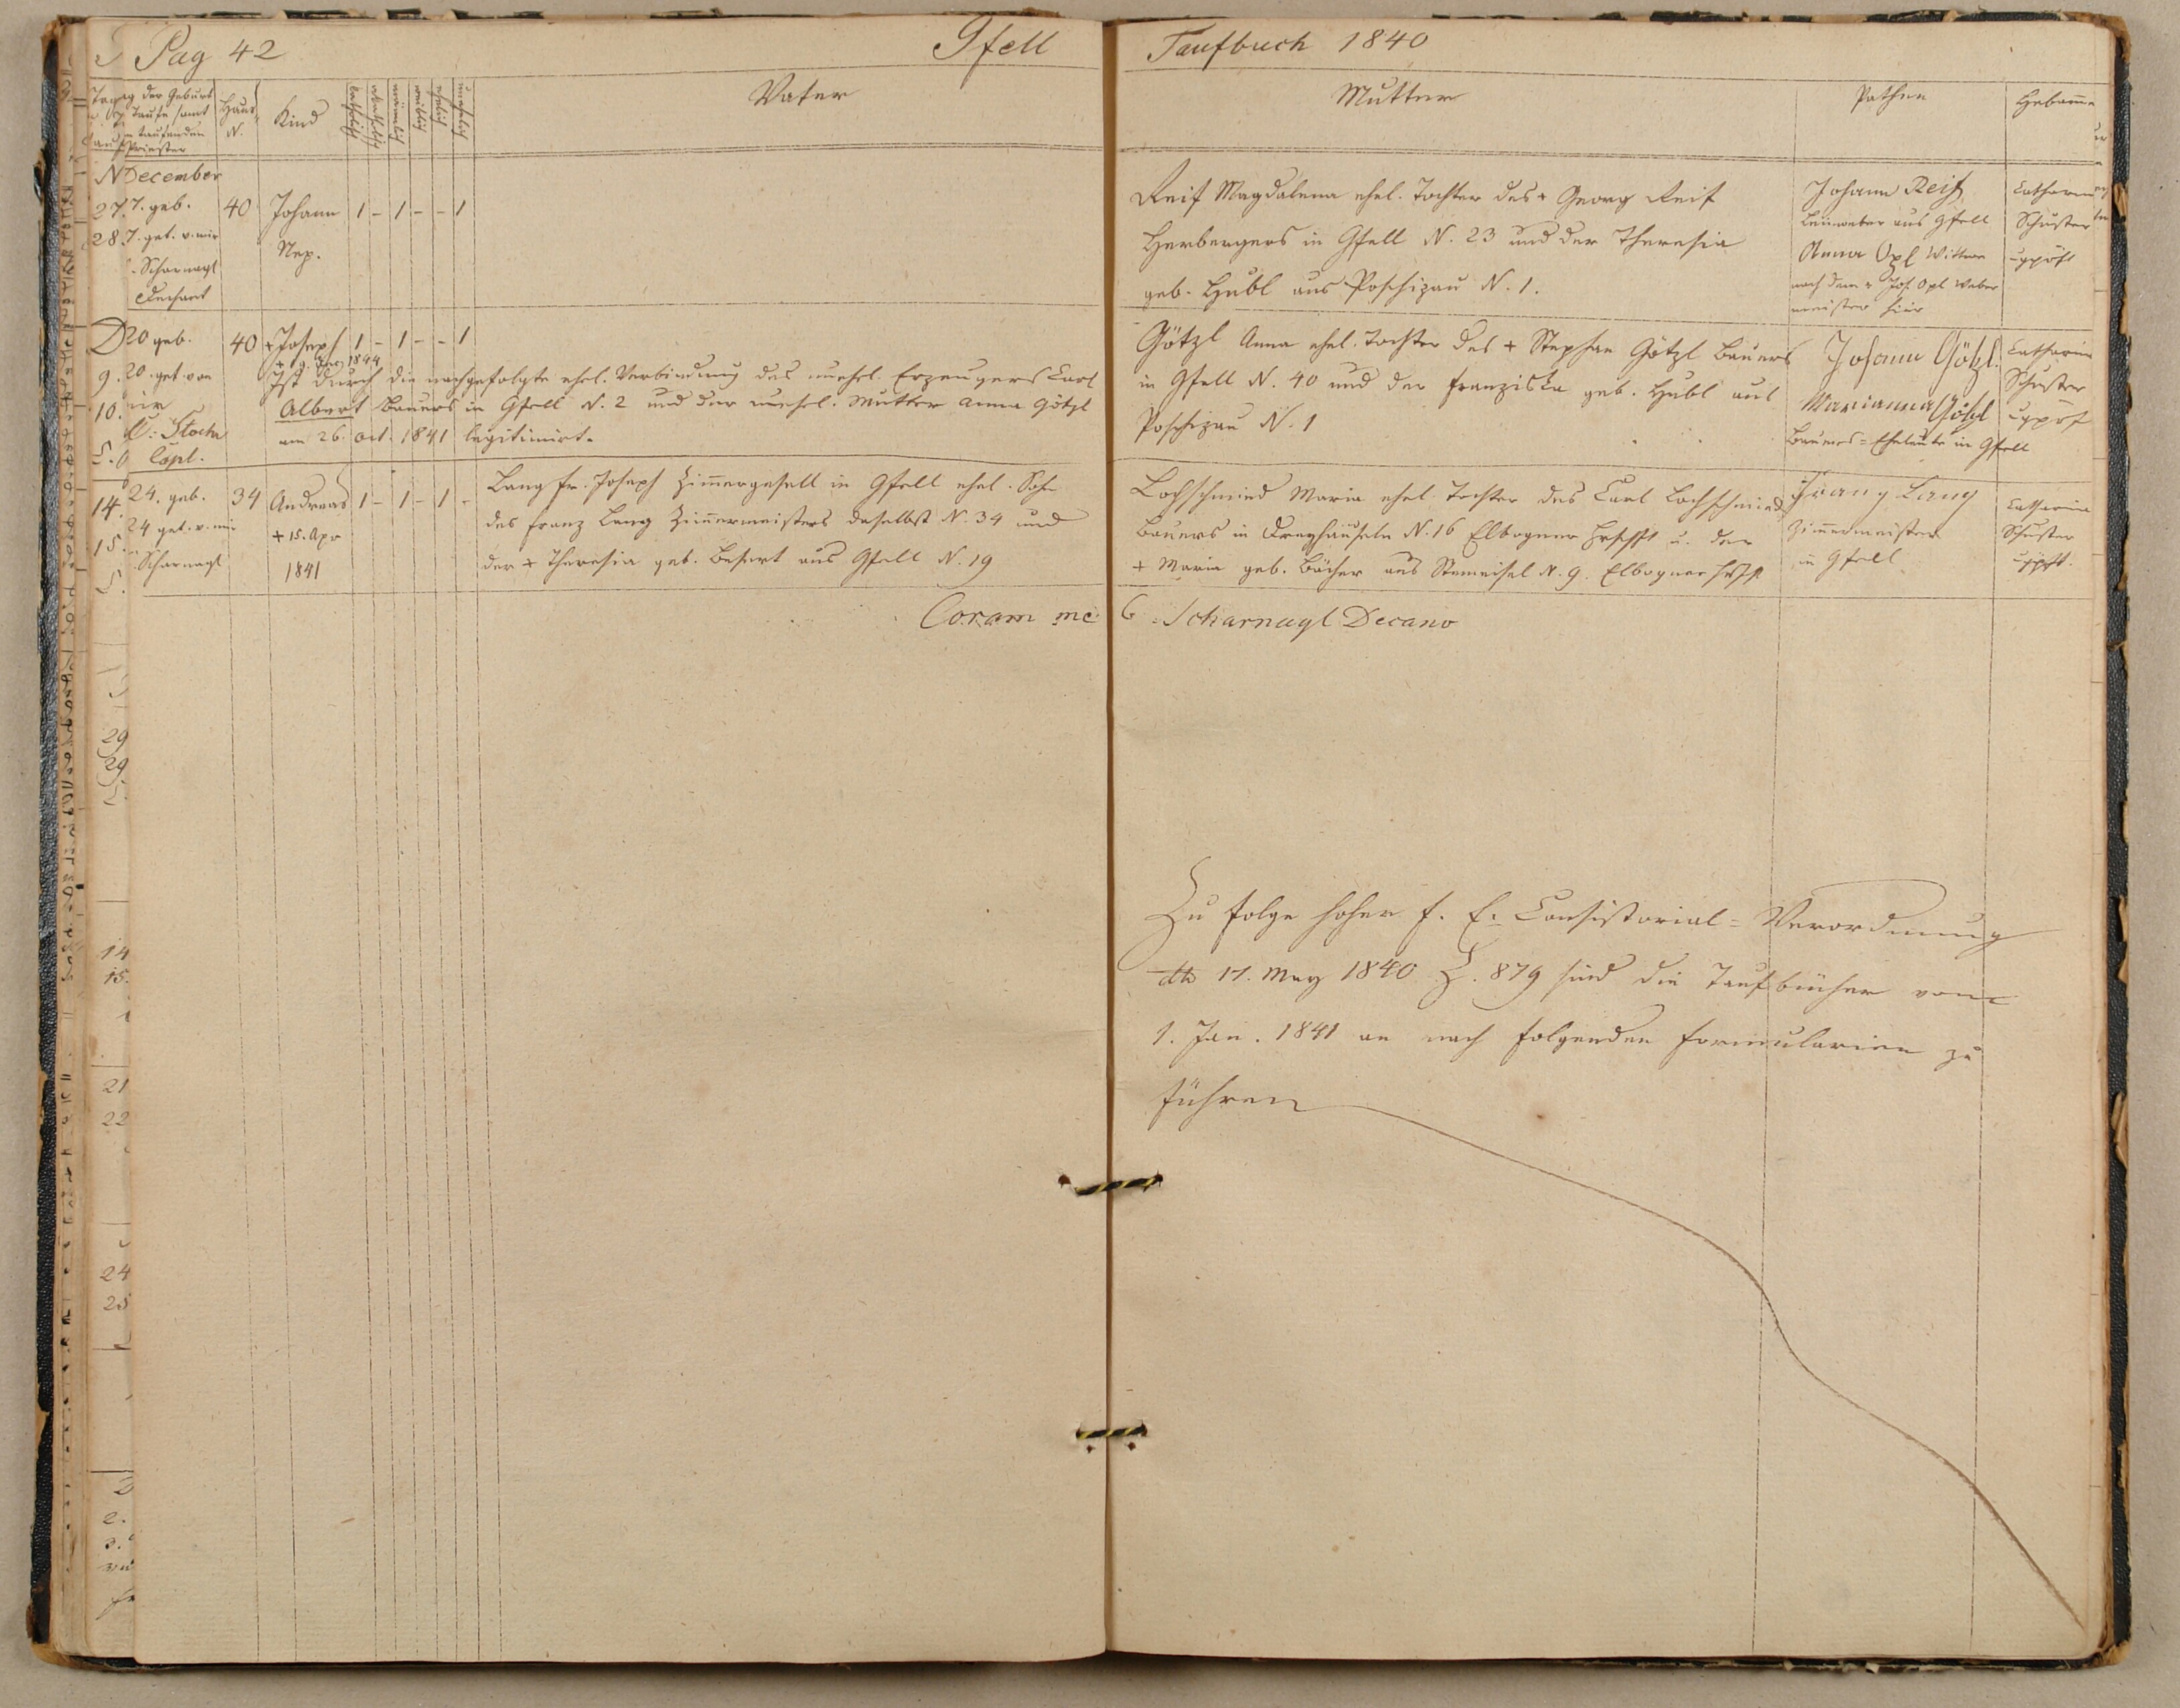 Pag 42
Gfell
Taufbuch 1840
Tag der Geburt
Taufe samt
taufenden
Priester
Haus
N.
Kind
katholisch
akatholisch
männlich
weiblich
ehelich
unehelich
Vater
Mutter
Pathen
Hebamme
December
7. geb.
7. get. v. mir
Scharnagl
Dechant
40
Johann
Nep.
1 - 1 - - 1
Reif Magdalena ehel. Tochter des + Georg Reif
Herbergers in Gfell N. 23 und der Theresia
geb. Hübl aus Poschizau N. 1.
Johann Reif
Leinweber aus Gfell
Anna Opl Wittwe
nach dem + Jos. Opl Weber
meister hier
Catharina
Schuster
ugpöft
20 geb.
20. get. von
mir
Stocher
Capl.
40
+ Joseph
1 - 1 - - 1
+ 9. Dez. 1844
Ist durch die nachgefolgte ehel. Verbindung des unehel. Erzeugers Carl
Albert Bauers in Gfell N. 2 und der unehel. Mutter Anna Götzl
am 26. Oct. 1841 legitimirt.
Götzl Anna ehel. Tochter des + Stephan Götzl Bauers
in Gfell N. 40 und der Franziska geb. Hübl aus
Poschizau N. 1
Johann Götzl
Marianna Götzl
Bauers = Eheleute in Gfell
Catharina
Schuster
ugpöft
24. geb.
24 get. v. mir
Scharnagl
34
Andreas
+ 15. Apr
1841
1 - 1 - 1 -
Lang Fr. Joseph Zimmergesell in Gfell ehel. Sohn
des Franz Lang Zimmermeisters daselbst N. 34 und
der + Theresia geb. Besert aus Gfell N. 19
Lochschmied Maria ehel. Tochter des Carl Lochschmied
Bauers in Dreyhäuseln N. 16 Elbogner Hrschft u. der
+ Maria geb. Bächer aus Steneisel N. 9. Elbogner Hrschft
Franz Lang
Zimmermeister
in Gfell
Catharina
Schuster
ugpöft.
Coram me
Scharnagl Decano
Zu folge hoher f. E. Consistorial = Verordnung
dto 17. May 1840 Z. 879 sind die Taufbücher vom
1. Jan. 1841 an nach folgenden Formularien zu
führen